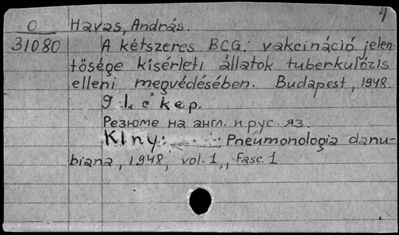 4
O Havas, András.
31080 A kétszeres BCG. vakcináció jelen-
tősége kísérleti állatok tuberkulózis
elleni megvédésében. Budapest, 1948.
9 l. c kep.
Резюме на англ. и рус. яз.
Klny: Pneumonologia danu-
biana, 1948, vol. 1., Fasc. 1